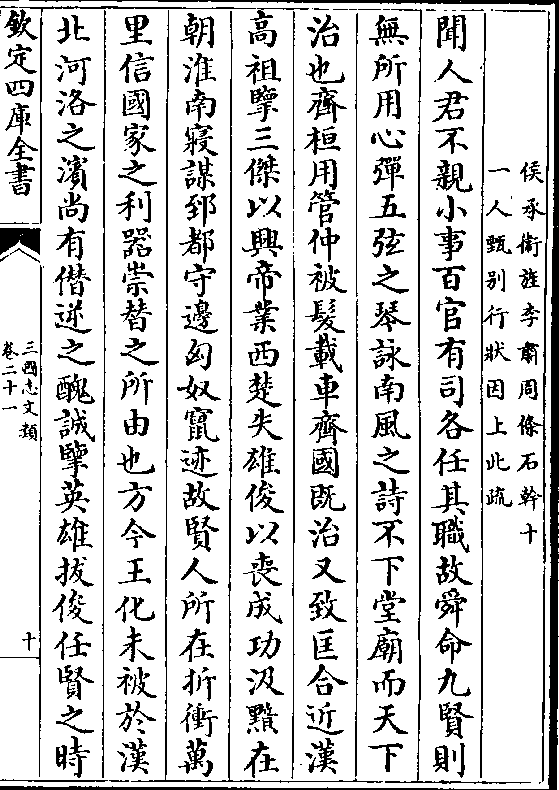 侯承衛旌李肅周條石幹十
一人甄别行狀因上此疏
聞人君不親小事百官有司各任其職故舜命九賢則
無所用心彈五弦之琴詠南風之詩不下堂廟而天下
治也齊桓用管仲被髮載車齊國既治又致匡合近漢
高祖擥三傑以興帝業西楚失雄俊以喪成功汲黯在
朝淮南寢謀郅都守邊匈奴竄迹故賢人所在折衝萬
里信國家之利器崇替之所由也方今王化未被於漢
北河洛之濱尚有僭逆之醜誠擥英雄拔俊任賢之時
欽定四庫全書
三國志文類
卷二十一
十